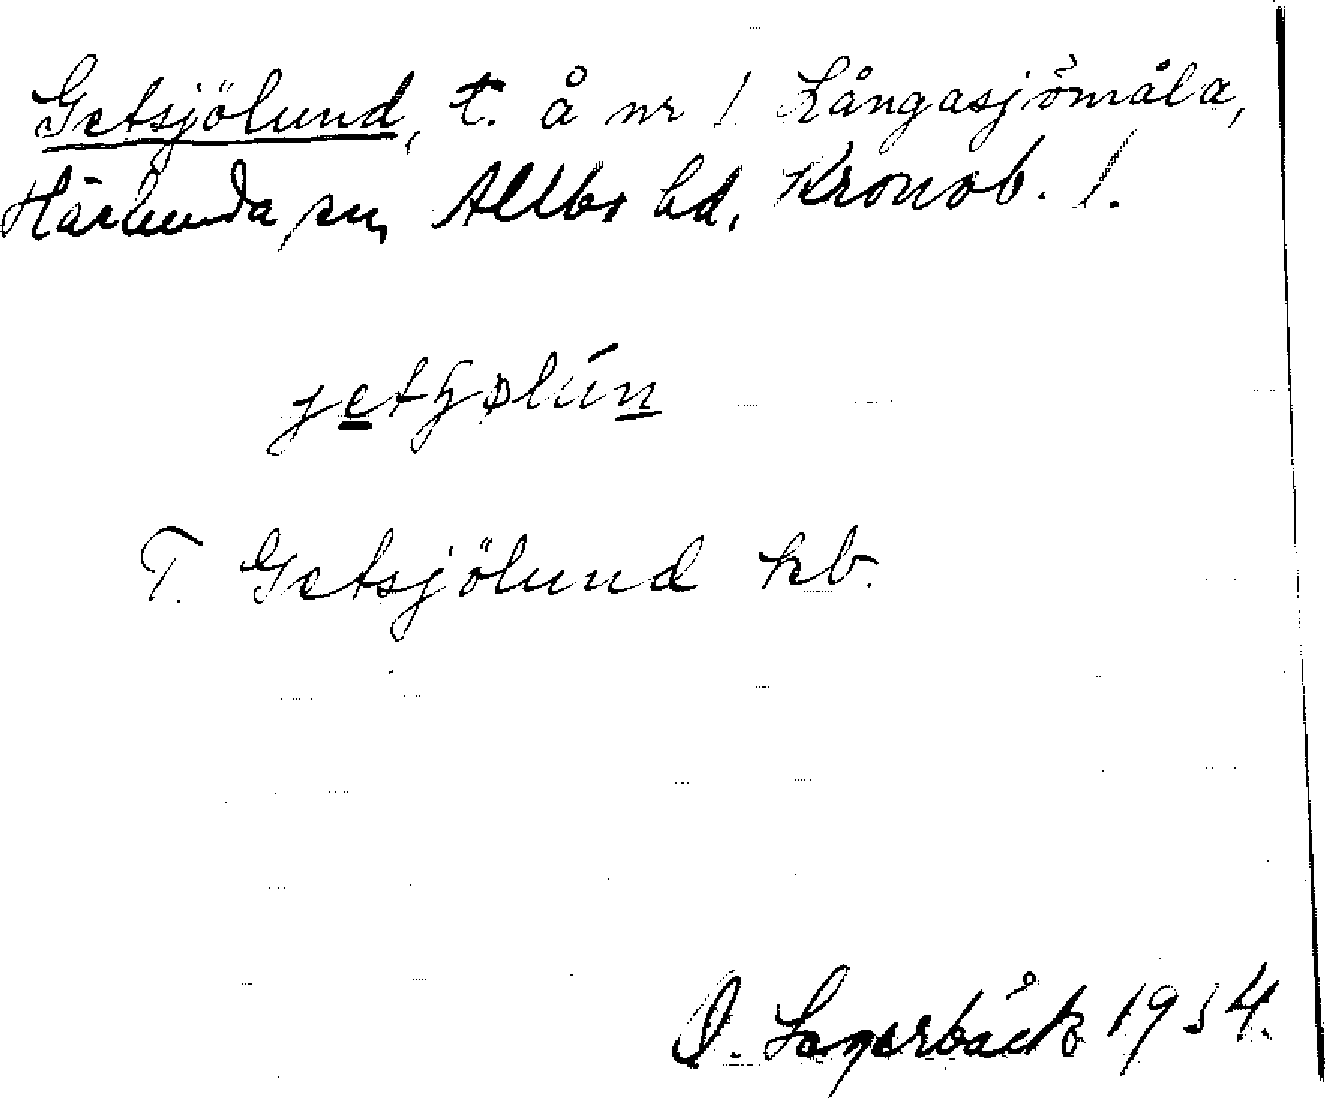 Getsjölund, t. å nr 1 Långasjömåla,
Härlunda sn, Allbo hd, Kronob. l.
T. Getsjölund hb.
O. Lagerbäck 1934.